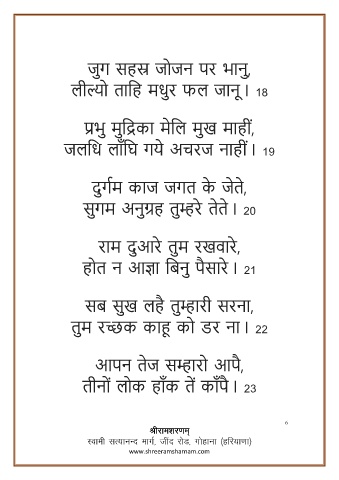 जुग सहस्र जोजन पर भानु,
लील्यो ताहि मधुर फल जानू। 18
प्रभु मुद्रिका मेलि मुख माहीं,
जलधि लाँघि गये अचरज नाहीं। 19
दुर्गम काज जगत के जेते,
सुगम अनुग्रह तुम्हरे तेते। 20
राम दुआरे तुम रखवारे,
होत न आज्ञा बिनु पैसारे। 21
सब सुख लहै तुम्हारी सरना,
तुम रच्छक काहू को डर ना। 22
आपन तेज सम्हारो आपै,
तीनों लोक हाँक तें काँपै। 23
6
श्रीरामशरणम्
स्वामी सत्यानन्द मार्ग, जींद रोड, गोहाना (हरियाणा)
www.shreeramshamam.com